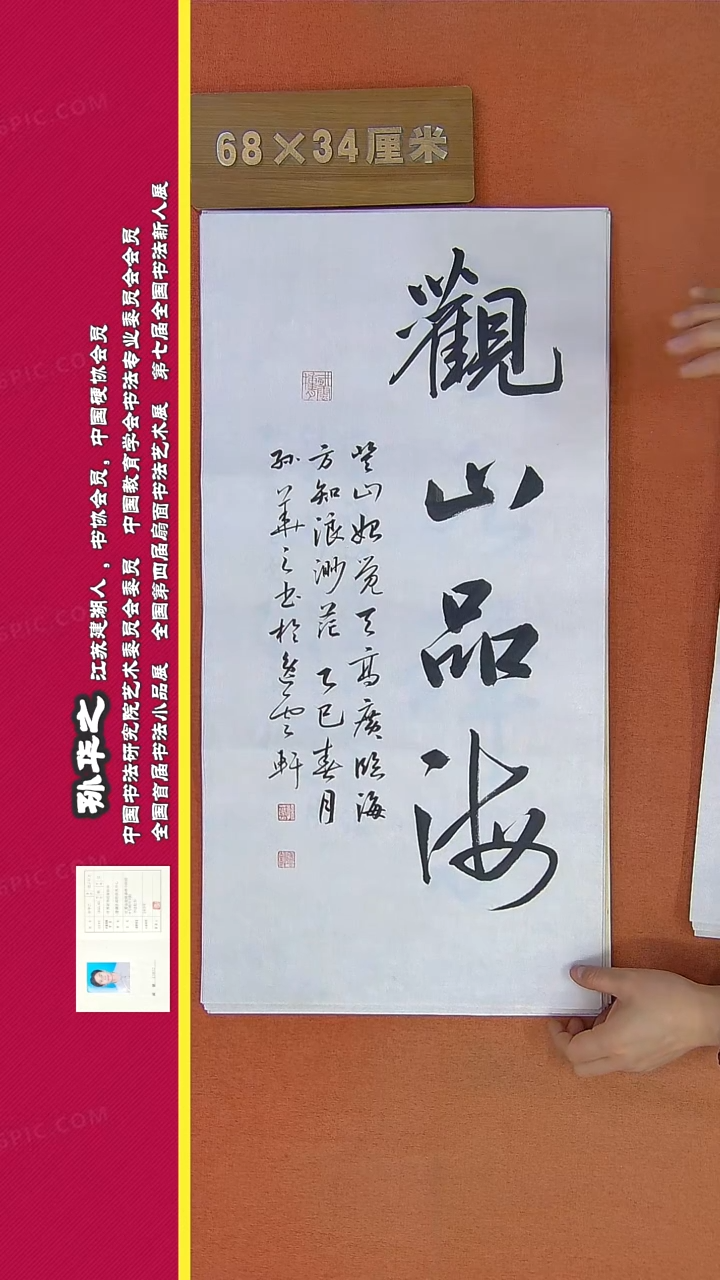 68×34厘米
觀山品海
登山始觉天高廣臨海
方知浪渺茫 乙巳春月
孙華之书於逸云軒
孙华之 江苏建湖人，书协会员，中国硬协会员
中国书法研究院艺术委员会委员 中国教育学会书法专业委员会会员
全国首届书法小品展 全国第四届扇面书法艺术展 第七届全国书法新人展